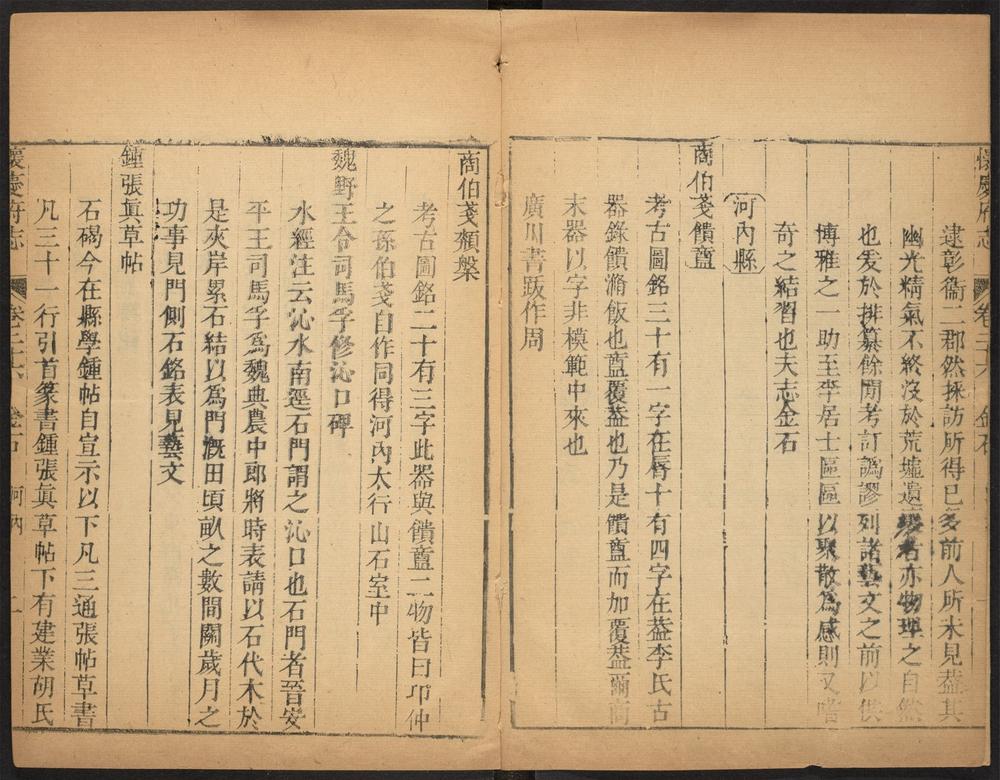 懷慶府志 卷二十六 金石
逮彰衞二郡然採訪所得已多前人所未見葢其
幽光精氣不終沒於荒墟遺者亦物理之自然
也爰於排纂餘閒考訂譌謬列諸藝文之前以供
博雅之一助至李居士區區以聚散為感則又嗜
奇之結習也夫志金石
河內縣
商伯戔饙䀇
考古圖銘三十有一字在脣十有四字在葢李氏古
器錄饙滫飯也䀇覆葢也乃是饙䀇而加覆葢爾商
末器以字非模範中來也
廣川書跋作周
商伯戔頮槃
考古圖銘二十有三字此器與饙䀇二物皆曰邛仲
之孫伯戔自作同得河內太行山石室中
魏野王令司馬孚修沁口碑
水經注云沁水南逕石門謂之沁口也石門者晉安
平王司馬孚爲魏典農中郎將時表請以石代木於
是夾岸累石結以爲門漑田頃畝之數間關歲月之
功事見門側石銘表見藝文
鍾張眞草帖
石碣今在縣學鍾帖自宣示以下凡三通張帖草書
凡三十一行引首篆書鍾張眞草帖下有建業胡氏
懷慶府志 卷二十六 金石 河內 二